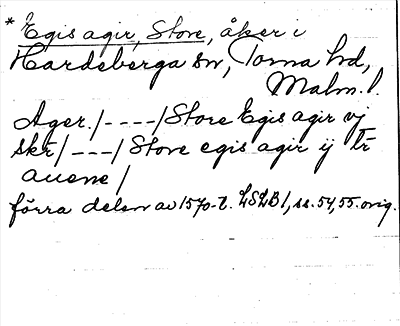 * Egis agir, Store, åker i
Hardeberga sn, Torna hd,
Malm. l.
Ager. /----/ Store Egis agir vj
skr /---/ Store egis agir ij tr
auene /
förra delen av 1570-t. LSLB 1, ss. 54, 55. orig.